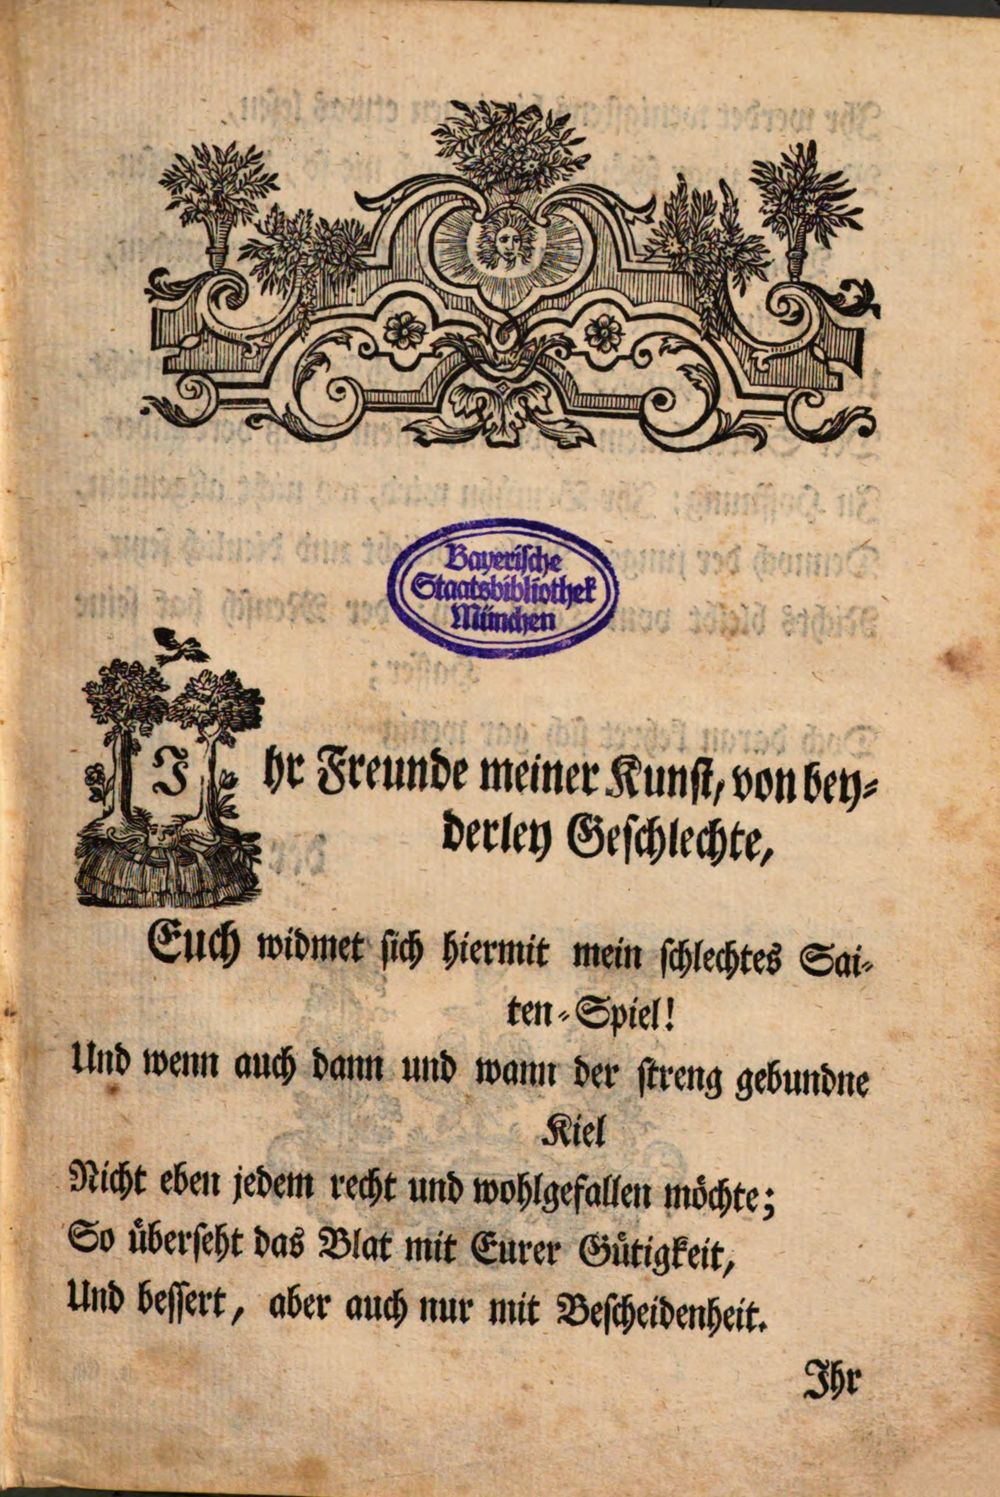 Bayerische
Staatsbibliothek
München
Ihr Freunde meiner Kunst, von bey⸗
derley Geschlechte,
Euch widmet sich hiermit mein schlechtes Sai⸗
ten⸗Spiel!
Und wenn auch dann und wann der streng gebundne
Kiel
Nicht eben jedem recht und wohlgefallen möchte;
So überseht das Blat mit Eurer Gütigkeit,
Und bessert, aber auch nur mit Bescheidenheit.
Ihr